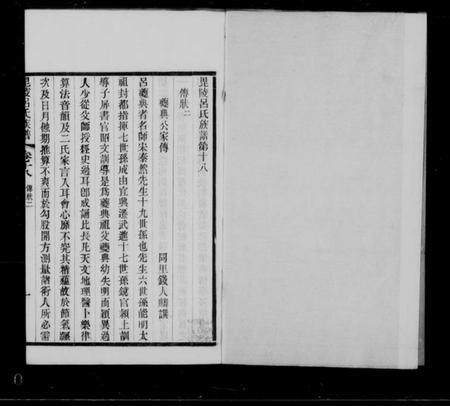 毘陵呂氏族譜第十八
傳狀二
夔典公家傳
同里錢人麟譔
呂夔典者名師宋泰然先生十九世孫也先生六世孫能明太
祖封都指揮七世孫成由宜興遷武進十七世孫鏡官潁上訓
導子屏書官昭文訓導是為夔典祖父夔典幼失明而穎異過
人少從父師授經史過耳卽成誦比長凡天文地理醫卜樂律
算法音韻及二氏家言入耳會心靡不究其精蘊故於節氣躔
次及日月僽期推算不爽而於勾股開方測量諸術人所必需
毘陵呂氏族譜
卷十八
傳狀二
一